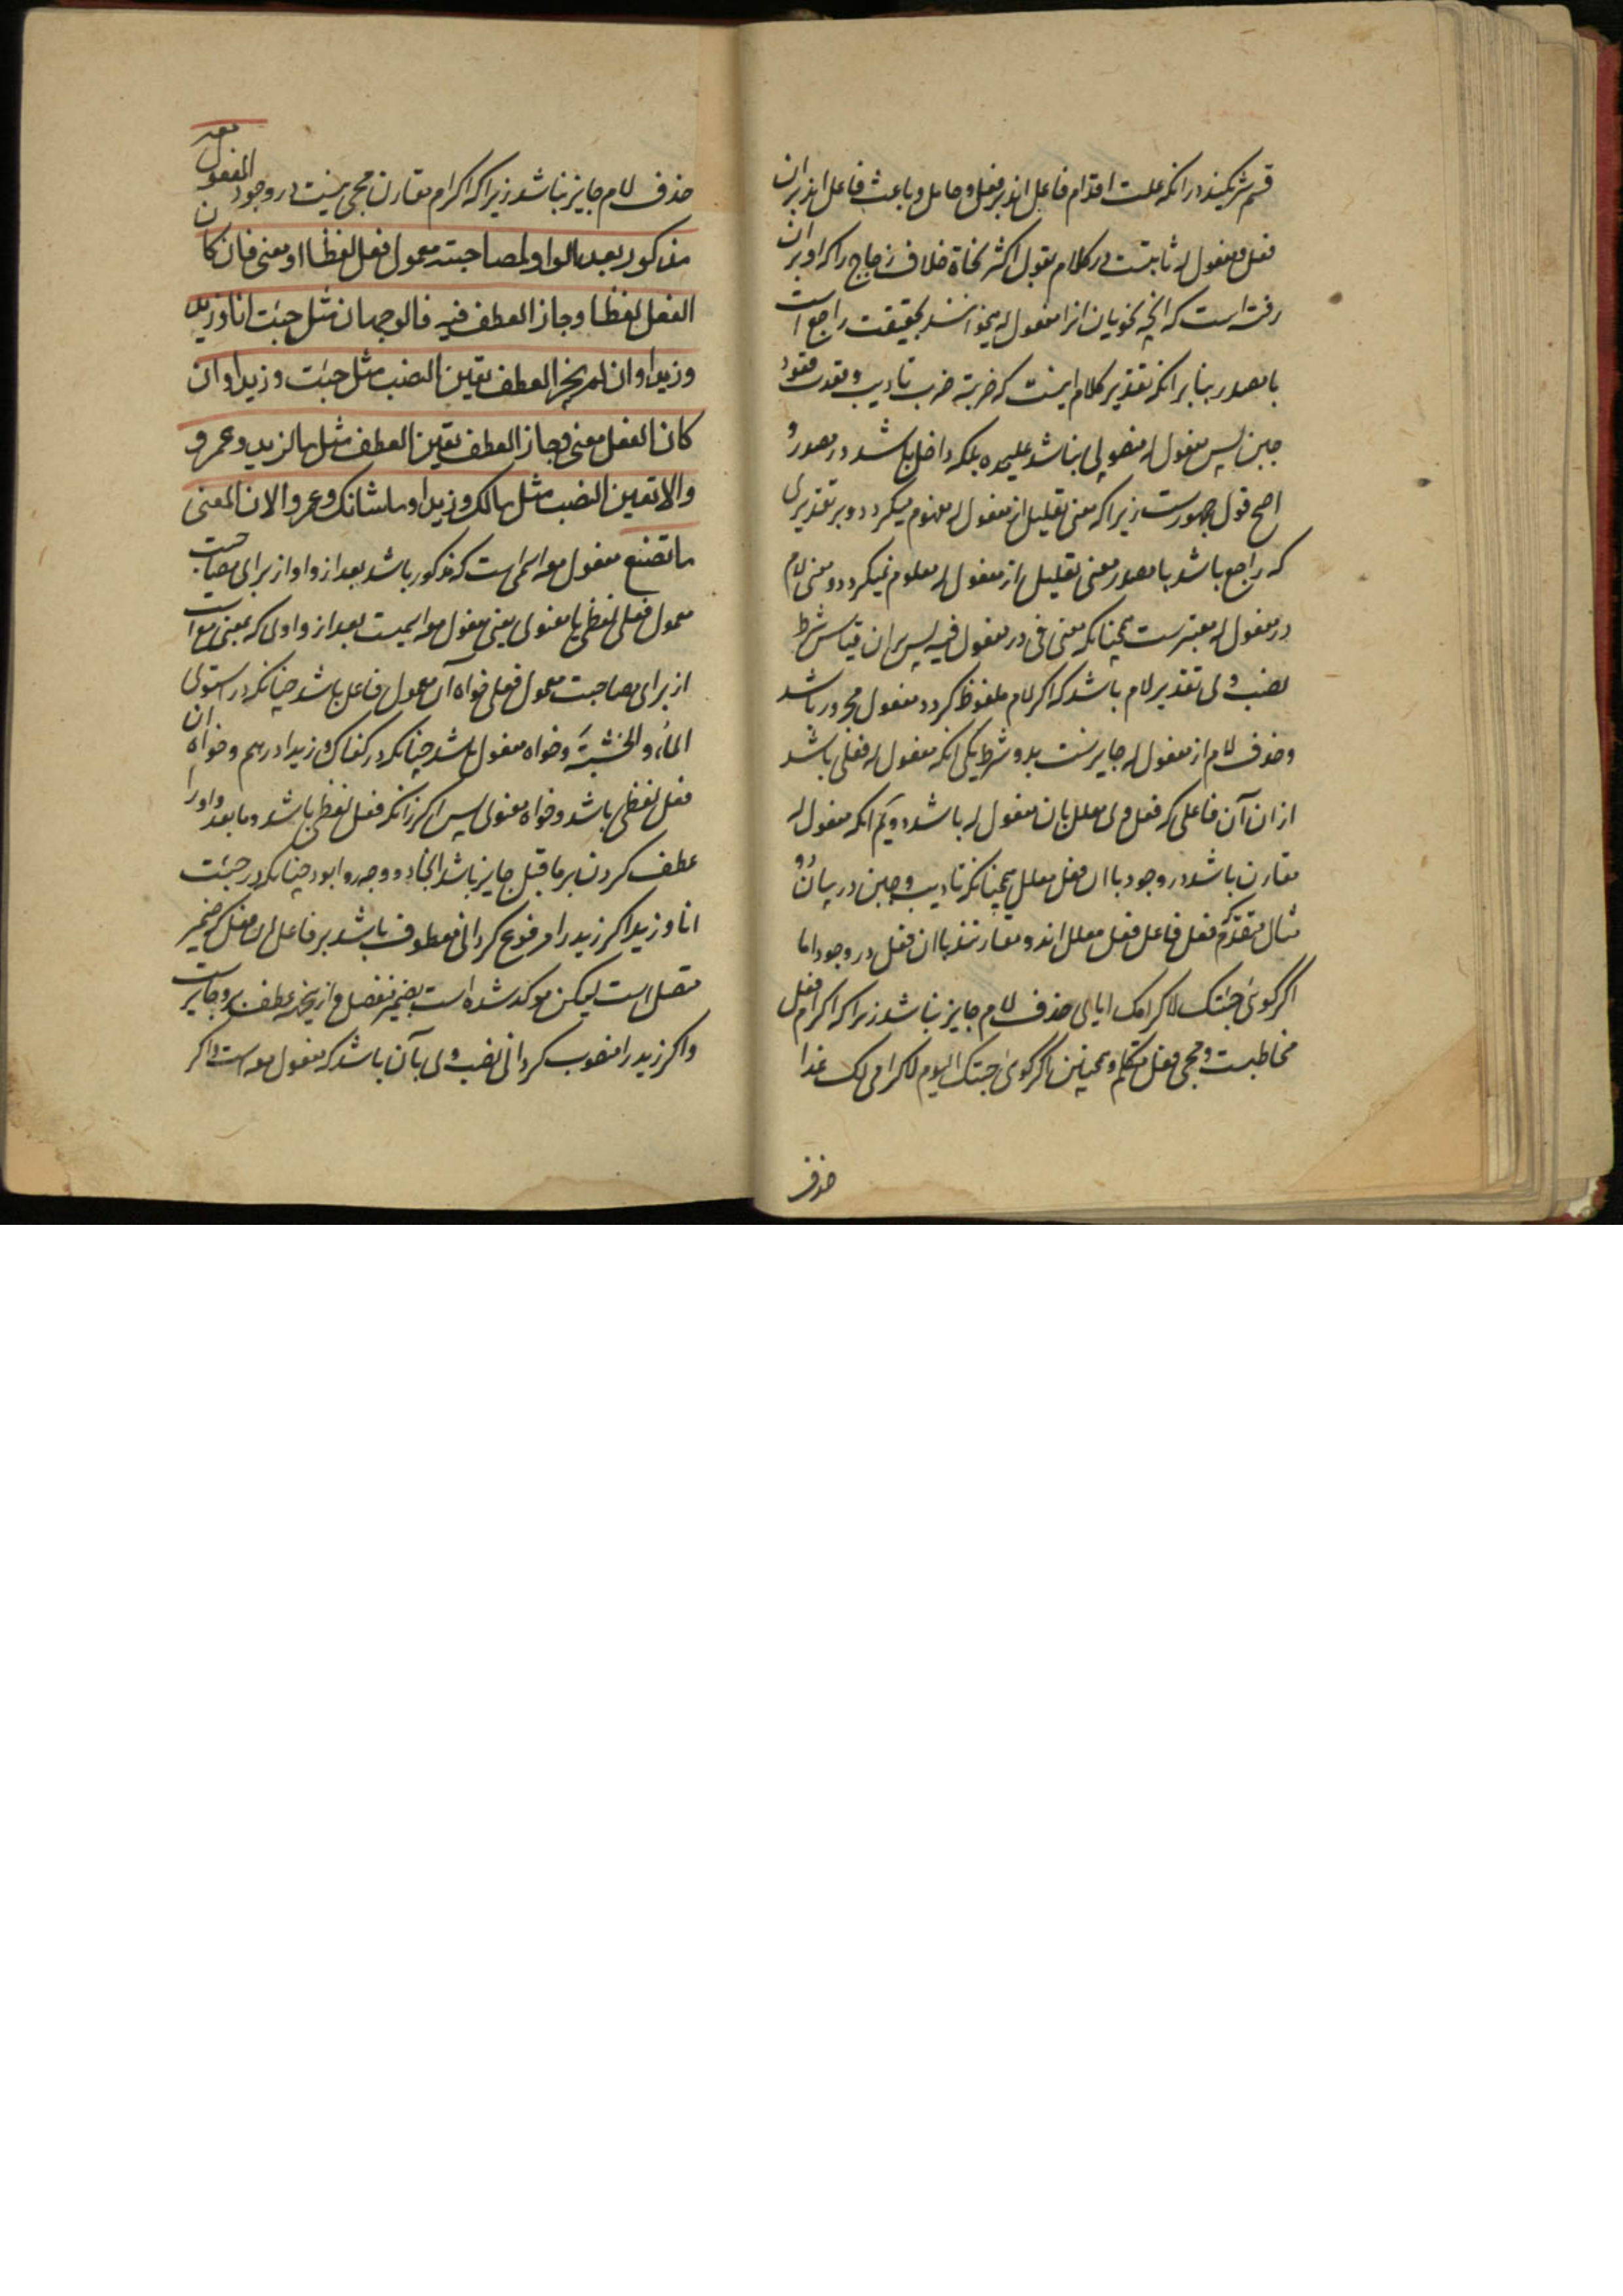 قسم شریکند در انکه علت اقدام فاعل اند بر فعل و حامل و باعث فاعل اند بران
فعل و مفعول له ثابتست در کلام بقول اکثر نحاة خلاف زجاج را که او بران
رفته است که انچه نحویان انرا مفعول له میخوانند بحقیقت راجع است
با مصدر بنا بر انکه تقدیر کلام اینست که ضربته ضرب تادیب و قعدت قعود
جبن پس مفعول له منصوبی نباشد علیحده بلکه داخل باشد در مصدر و
اصح قول جمهورست زیرا که معنی تعلیل از مفعول له مفهوم میکردد و بر تقدیری
که راجع باشد با مصدر معنی تعلیل از مفعول له معلوم نمیکردد و معنی لام
در مفعول له معتبرست همچنانکه معنی فی در مفعول فیه پس بران قیاس شرط
نصب وی تقدیر لام باشد که اکر لام ملفوظ کردد مفعول مجرور باشد
و حذف لام از مفعول له جایزست بدو شرط یکی انکه مفعول له فعلی باشد
از ان آن فاعلی که فعل وی معلل بان مفعول له باشد دویم انکه مفعول له
مقارن باشد در وجود با ان فعل معلل همچنانکه تادیب و جبن در بیان دو
مثال متقدم که فعل فاعل فعل معلل اند و مقارنند با ان فعل در وجود اما
اکر کوئی جئتک لاکرامک ایای حذف لام جایز نباشد زیرا که اکرام فعل
مخاطبست و مجی فعل متکلم و همچنین اکر کوئی جئتک الیوم لاکرامی لک غدا
حذف
حذف لام جایز نباشد زیرا که اکرام مقارن مجی نیست در وجود المفعول معه
مذکور بعد الواو لمصاحبته معمول فعل لفظا او معنی فان کان
الفعل لفظا و جاز العطف فیه فالوجهان مثل جئت انا و زید
و زیدا و ان لم یجز العطف تعین النصب مثل جئت و زیدا و ان
کان الفعل معنی و جاز العطف تعین العطف مثل ما لزید و عمرو
و الا تعین النصب مثل مالک و زیدا و ما شانک و عمروا لان المعنی
ما تصنع مفعول معه اسمی است که مذکور باشد بعد از واو از برای مصاحبت
معمول فعلی لفظی یا معنوی یعنی مفعول معه اسمیست بعد از واوی که بمعنی مع است
از برای مصاحبت معمول فعلی خواه آن معمول فاعل باشد چنانکه در استوی
الماء و الخشبة و خواه مفعول باشد چنانکه در کفاک و زیدا درهم و خواه ان
فعل لفظی باشد و خواه معنوی پس اکر زانکه فعل لفظی باشد و ما بعد واو را
عطف کردن بر ما قبل جایز باشد انجا دو وجه روا بود چنانکه در جئت
انا و زیدا اکر زید را مرفوع کردانی معطوف باشد بر فاعل ان فعل که ضمیر
متصل است لیکن موکد شده است بضمیر منفصل و ازینجهة عطف برو جایزست
و اکر زید را منصوب کردانی نصب وی بآن باشد که مفعول معه است و اکر